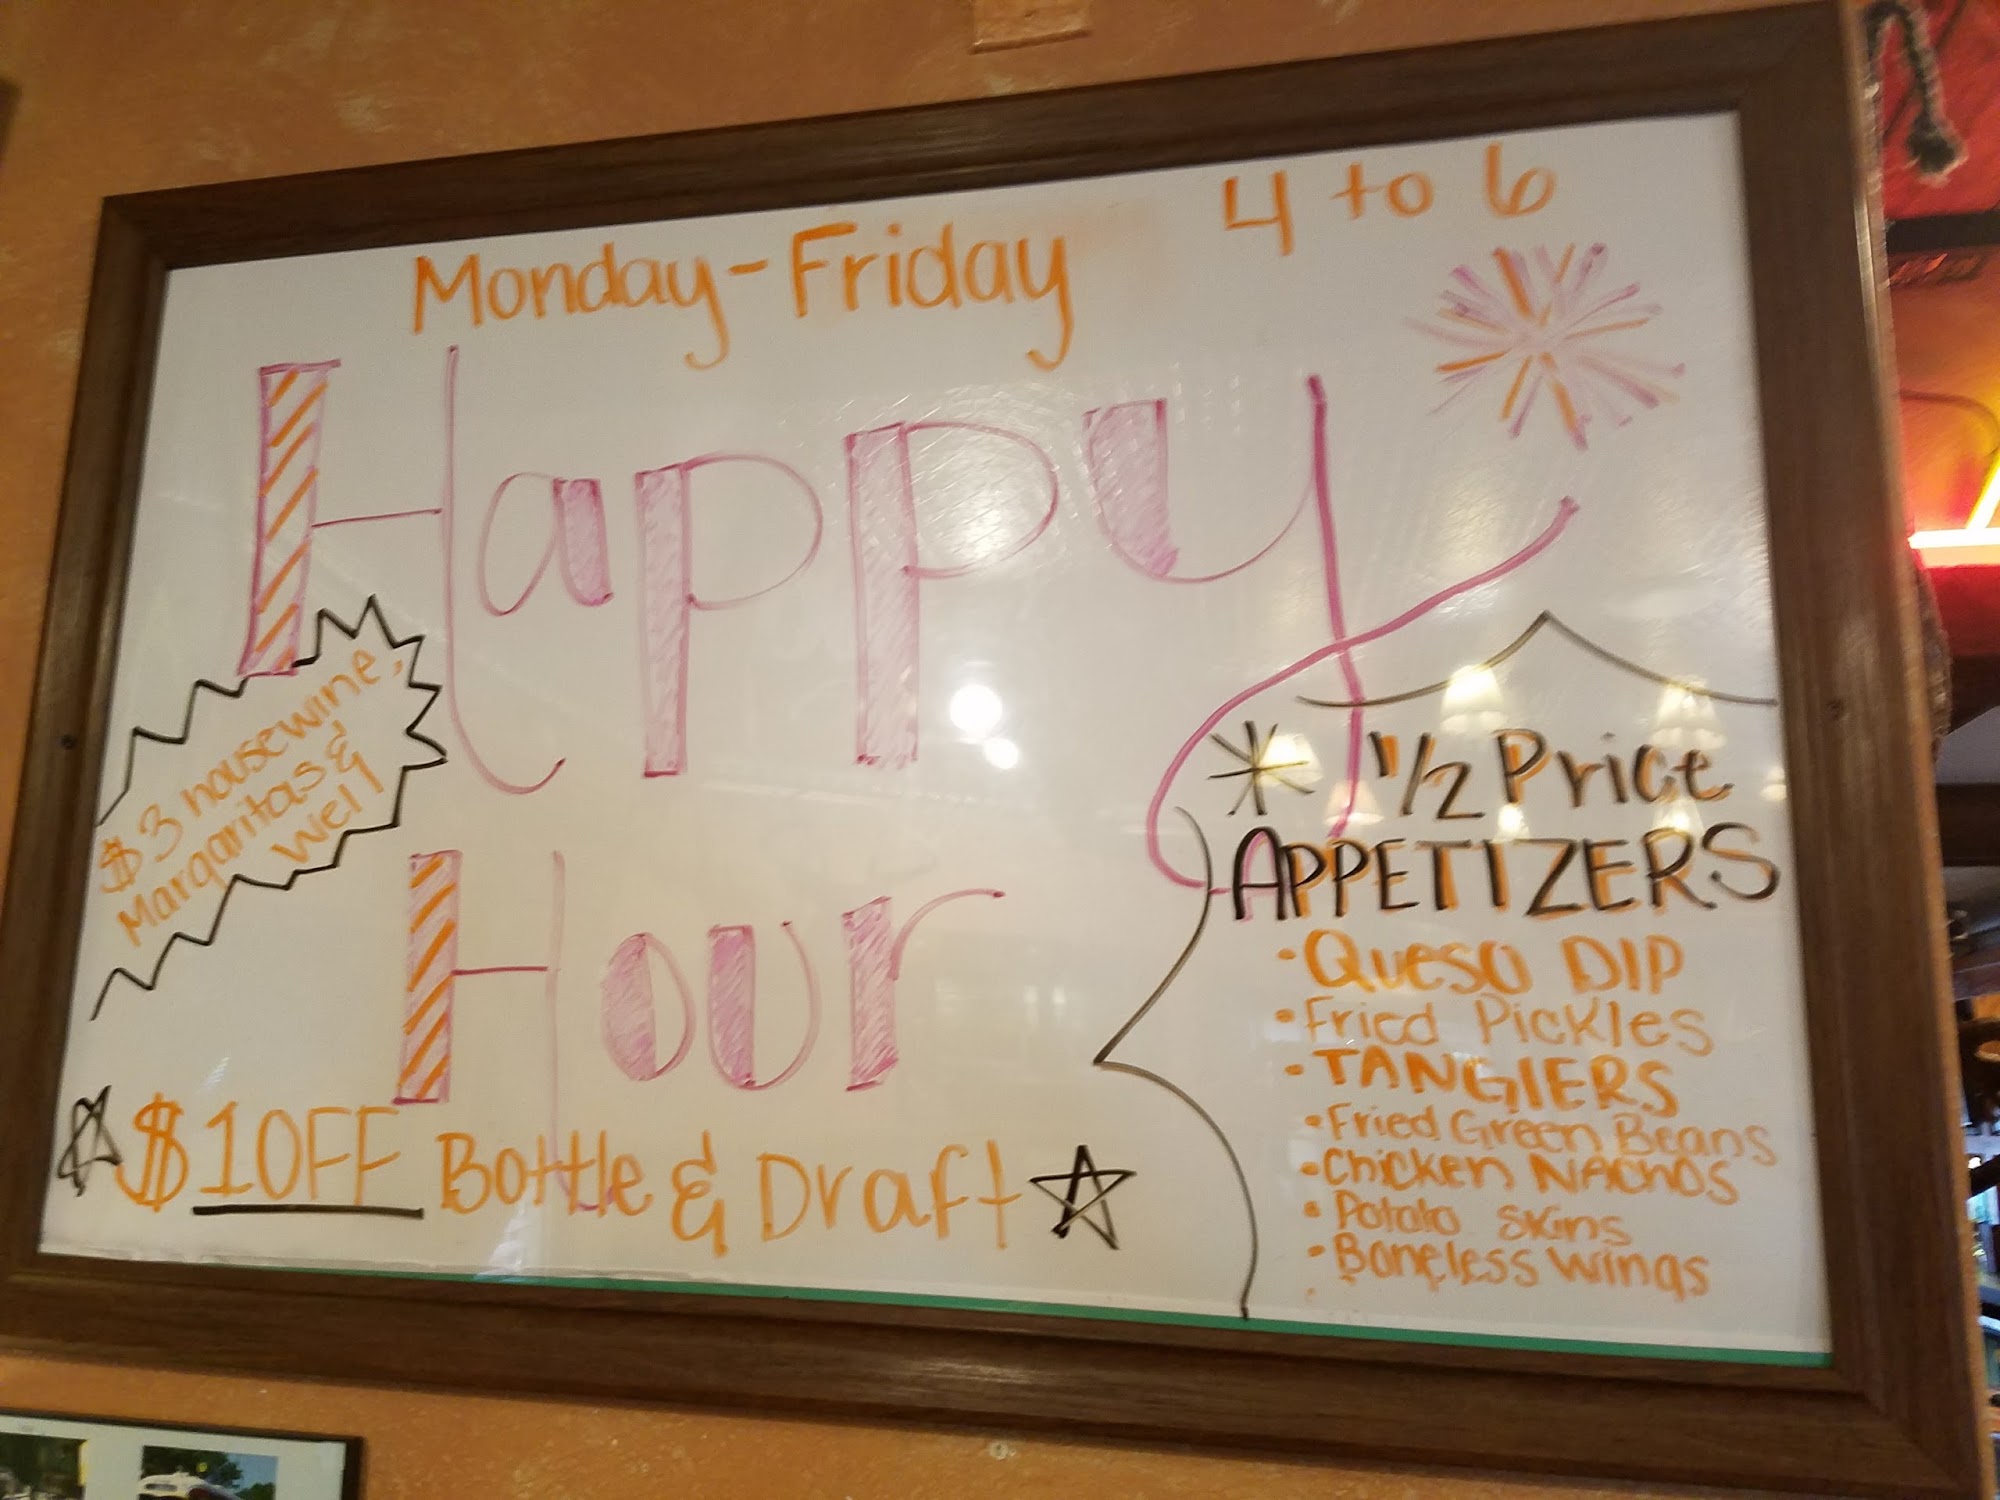 Monday-Friday 4 to 6
Happy
Hour
$3 housewine,
Margaritas &
Well
$1 OFF Bottle & Draft
* 1/2 Price
APPETIZERS
• Queso DIP
• Fried Pickles
• TANGIERS
• Fried Green Beans
• Chicken NAchos
• Potato skins
• Boneless Wings